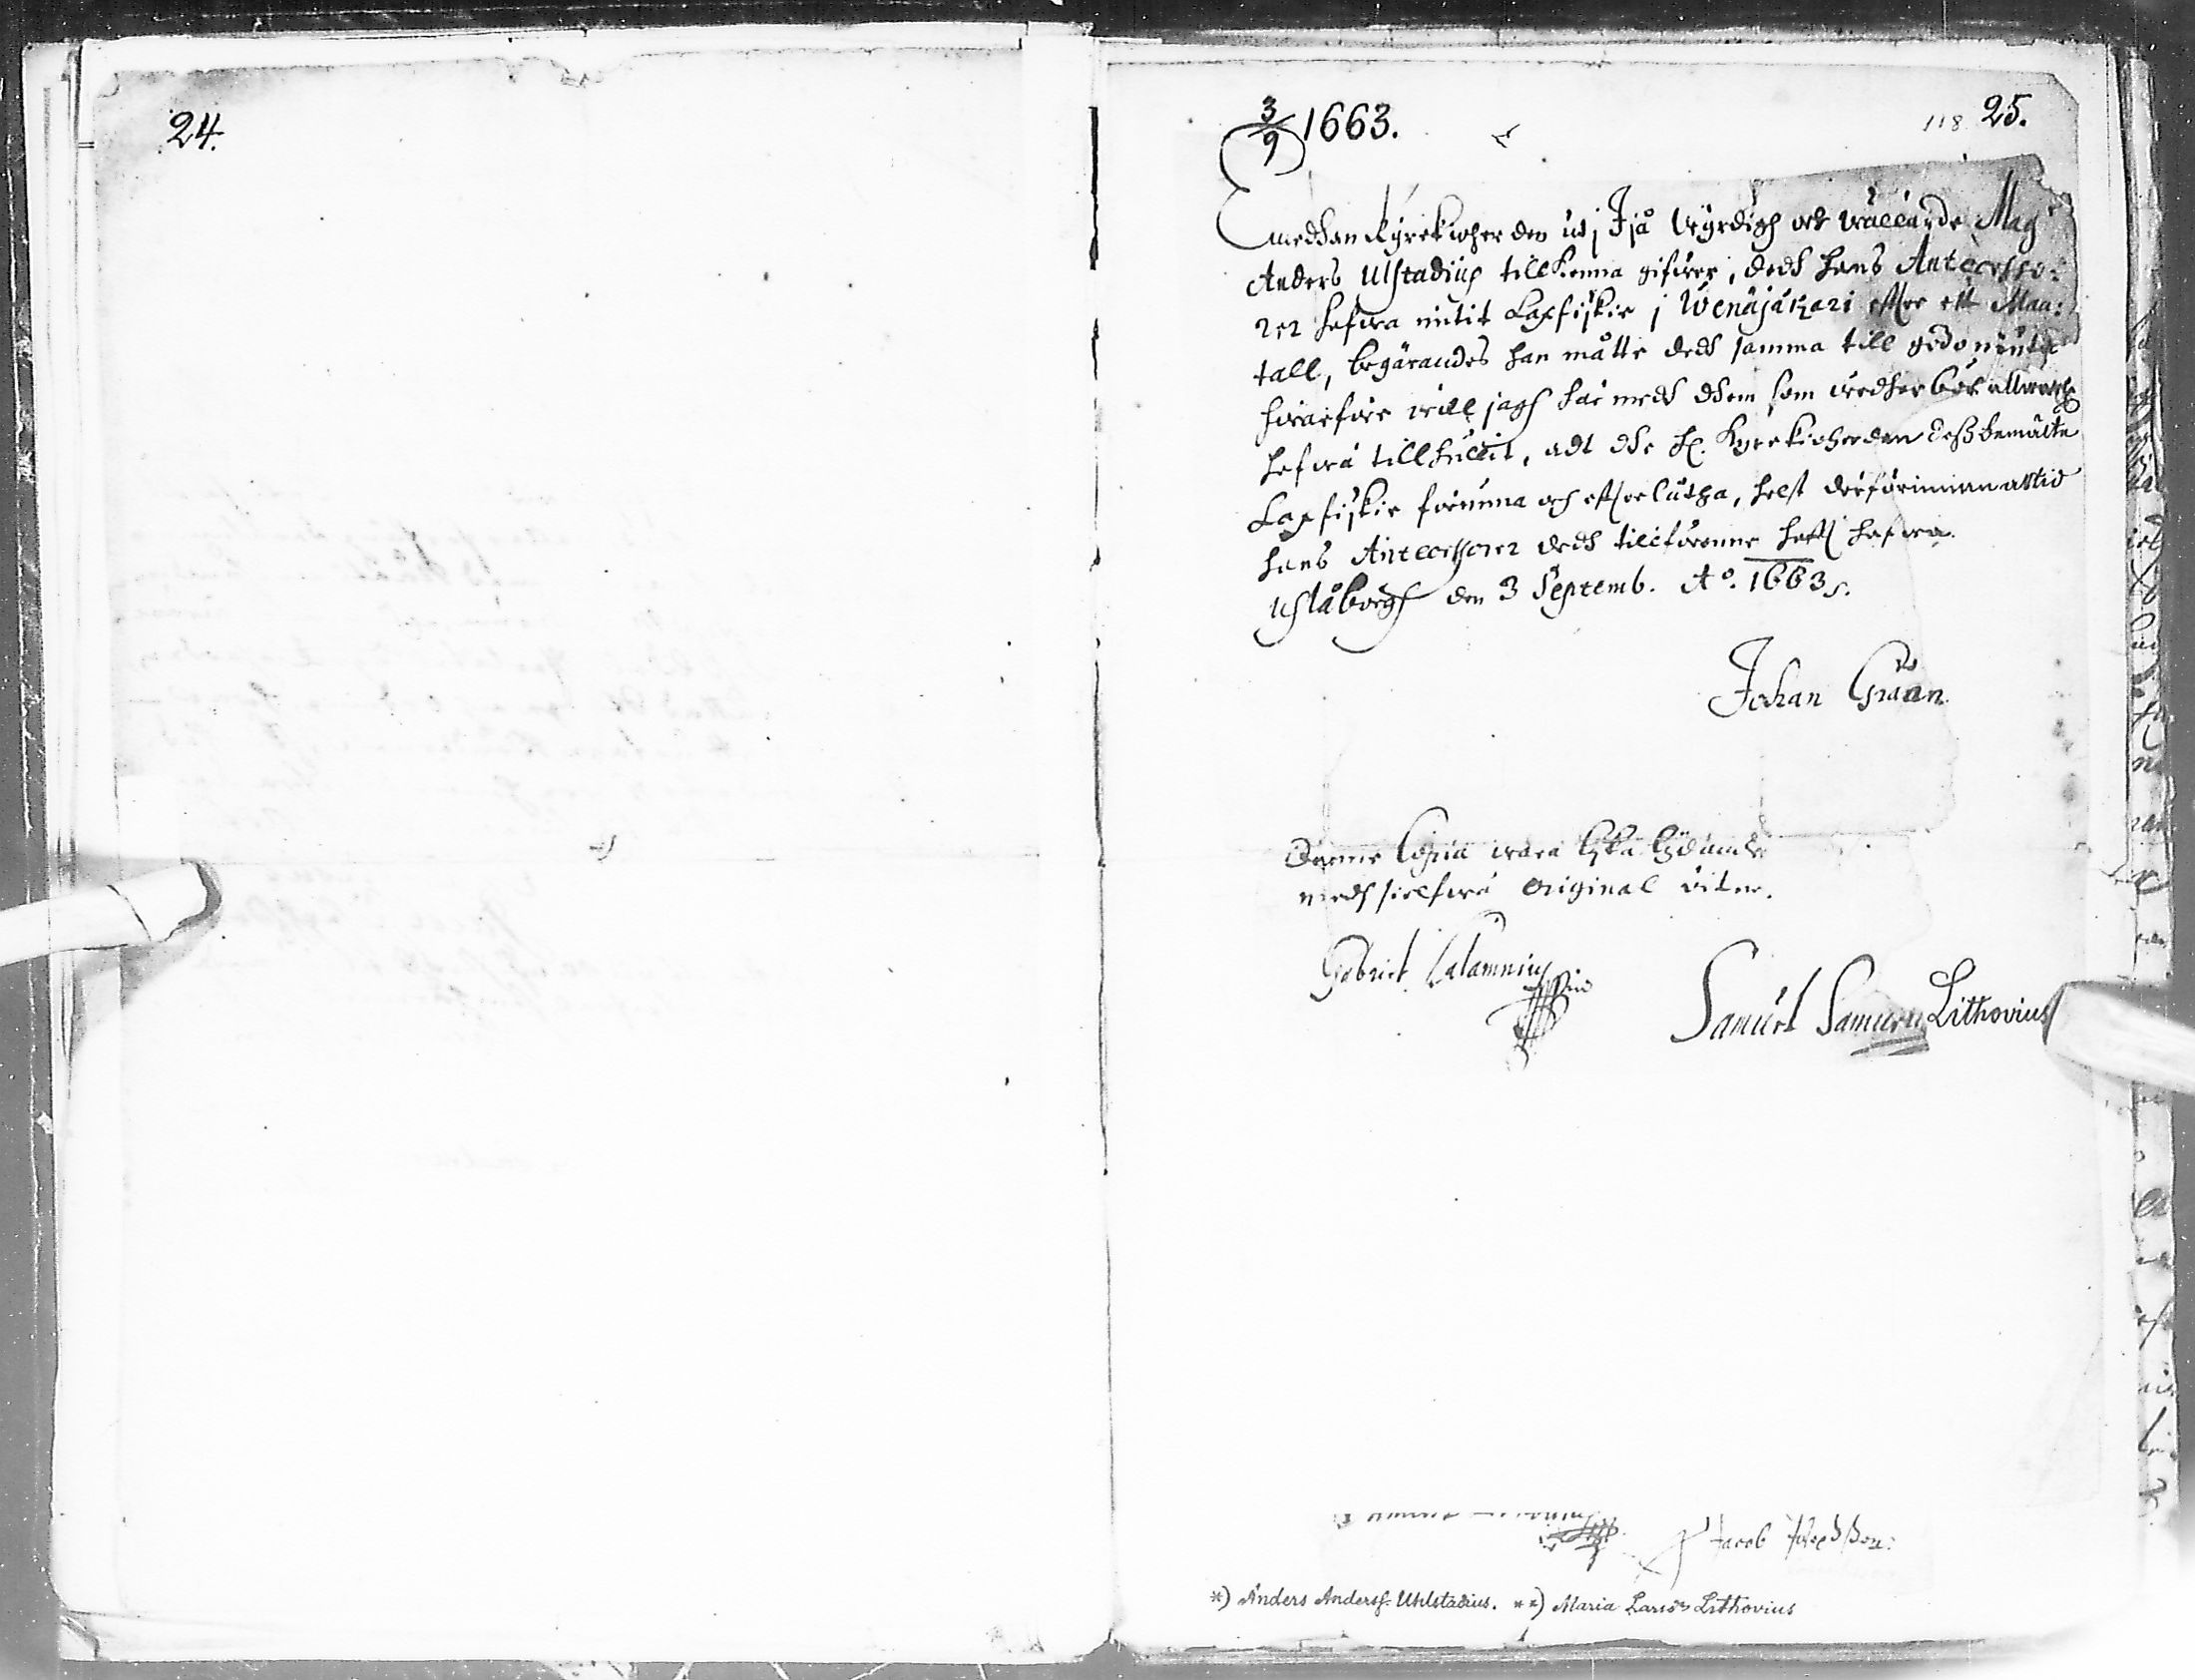 24.
3/9 1663.
118 25.
Emedhan Kyrckioherden udj Ijå Wyrdigh och wällärde Mag
Anders Ulstadius tillkenna gifwer, dedh hans Antecesso:
rer hafwa nutit Laxfiskie j Wenäjäkari effter ett Man:
tall, begärandes han måtte dedh samma till godo niuta
hwarföre will jagh här medh dhem som wedherbör
hafwa tillhållit, adt dhe H. Kyrckioherden dessbemälte
Laxfiskie förunna och effterlåtha, helst
hans Antecessorer dedh tillförenne hafft hafwa.
Uhlåborgh den 3 Septemb. Ao. 1663.
Johan Graan
Denne Copia wara lyka lydande
medh sielfwa Original vitne.
Gabriel Calamnius
Samuel Samuelis Lithovius
Jacob
*) Anders Anderss. Uhlstadius. **) Maria Larsdr Lithovius